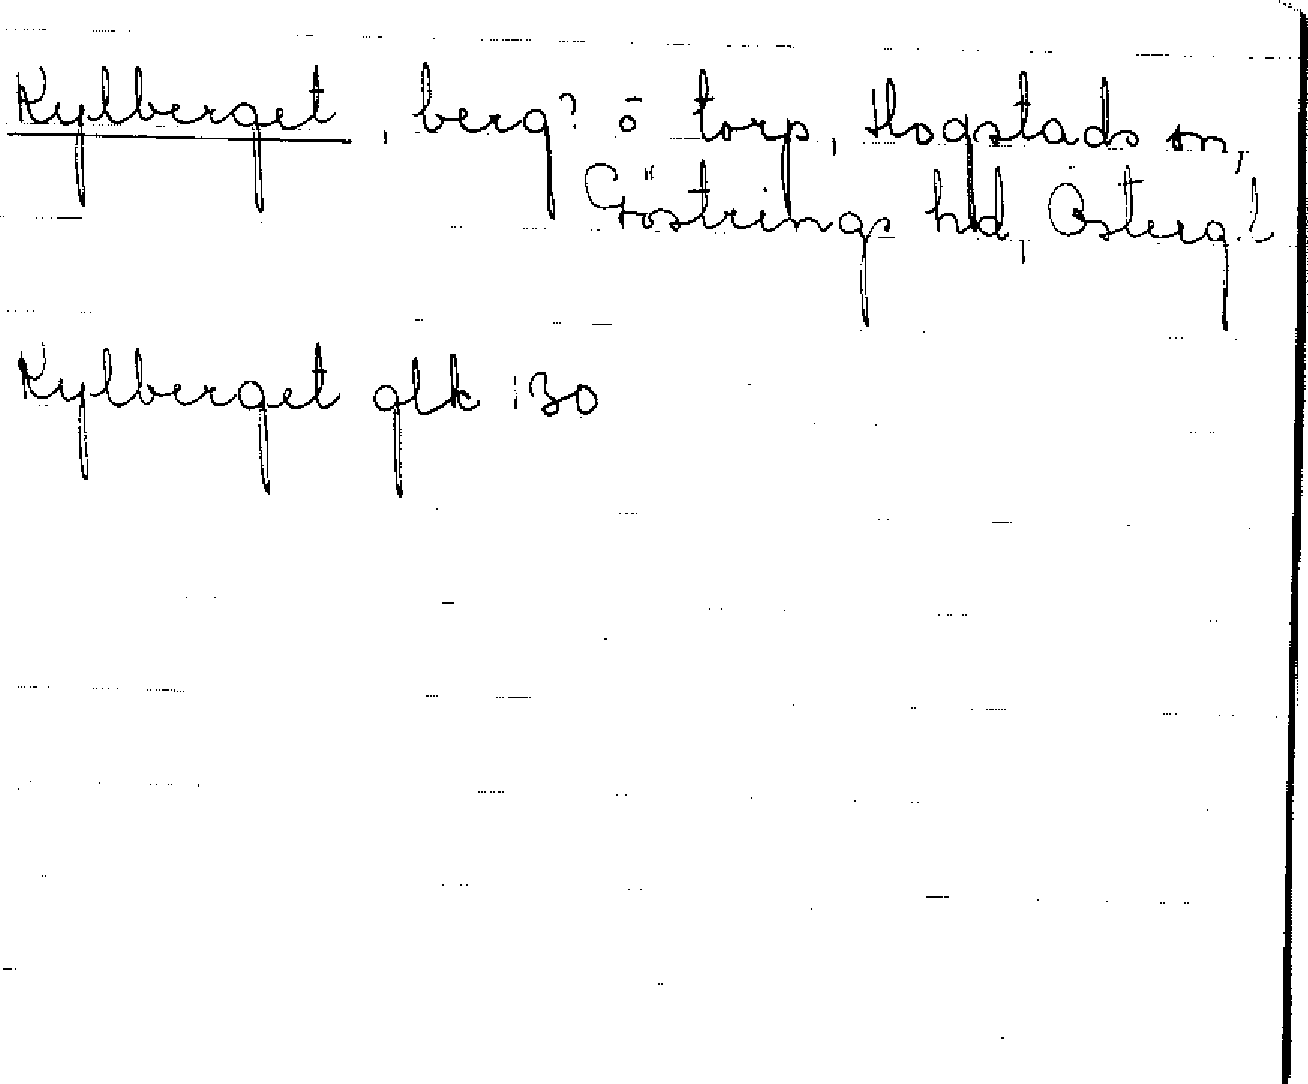 Kylberget, berg? o torp, Hogstads sn,
Göstrings hd, Österg!
Kylberget glk 130